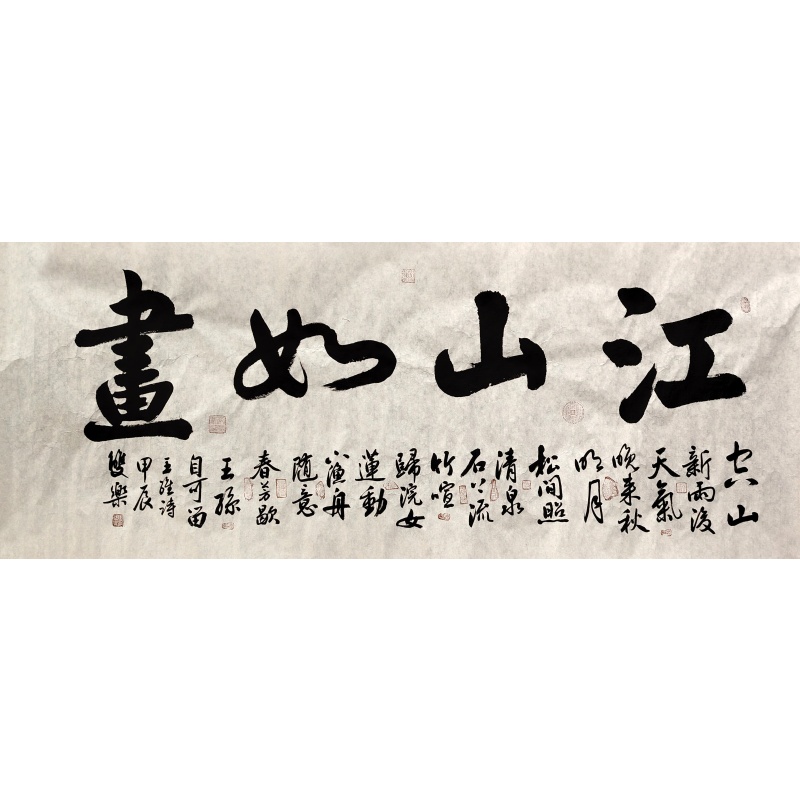 江山如畫
空山
新雨後
天氣
晚来秋
明月
松间照
清泉
石上流
竹喧
歸浣女
蓮動
漁舟
随意
春芳歇
王孫
自可留
王維诗
甲辰
雙樂